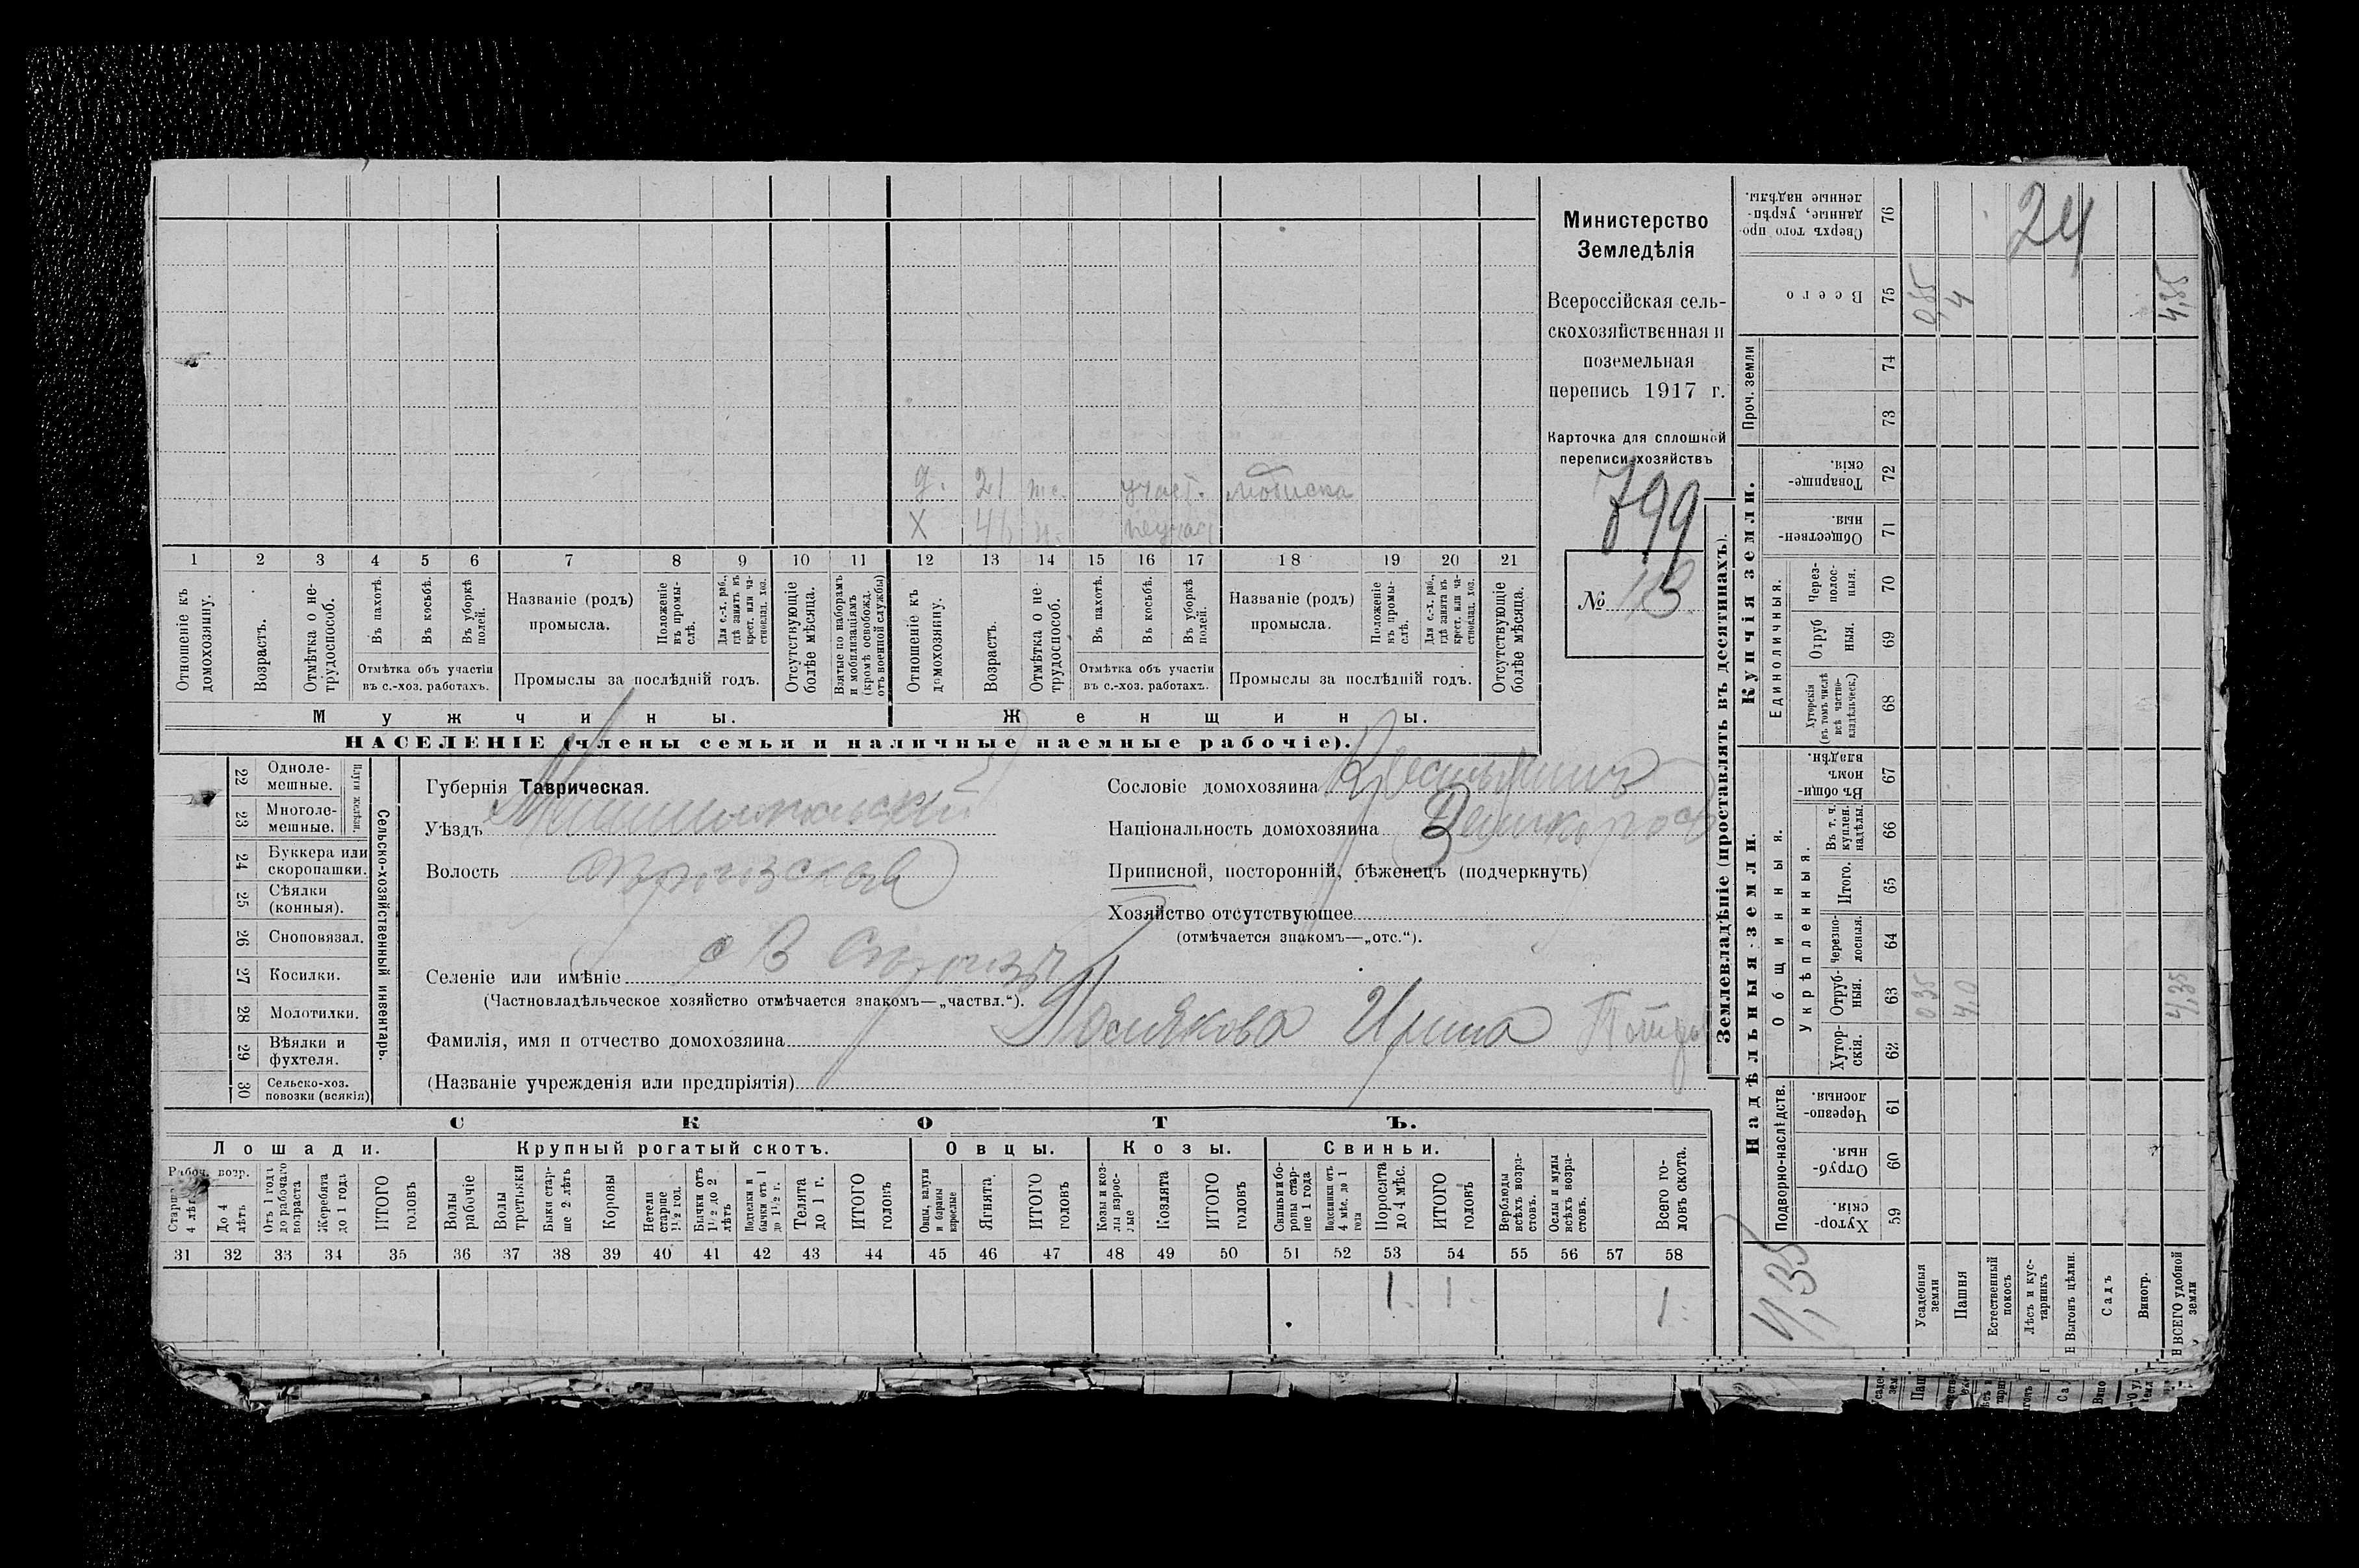 Министерство
Земледѣлія
Всероссійская сель-
скохозяйственная и
поземельная
перепись 1917 г.
Карточка для сплошной
переписи хозяйствъ
799
№ 13
24
Д. 21 участ.
X неучаст
1 2 3 4 5 6 7 8 9 10 11 12 13 14 15 16 17 18 19 20 21
Отношеніе къ домохозяину.
Возрастъ.
Отмѣтка о не-трудоспособ.
Въ пахотѣ.
Въ косьбѣ.
Въ уборкѣ полей.
Отмѣтка объ участіи
въ с.-хоз. работахъ.
Названіе (родъ)
промысла.
Положеніе въ промы-слѣ.
Для с.-х. раб., гдѣ занятъ въ крест. или ча-стновлад. хоз.
Промыслы за послѣдній годъ.
Отсутствующіе болѣе мѣсяца.
Взятые по наборамъ и мобилизаціямъ (кромѣ освобожд. отъ военной службы)
Отношеніе къ домохозяину.
Возрастъ.
Отмѣтка о не-трудоспособ.
Въ пахотѣ.
Въ косьбѣ.
Въ уборкѣ полей.
Отмѣтка объ участіи
въ с.-хоз. работахъ.
Названіе (родъ)
промысла.
Положеніе въ промы-слѣ.
Для с.-х. раб., гдѣ занята въ крест. или ча-стновлад. хоз.
Промыслы за послѣдній годъ.
Отсутствующіе болѣе мѣсяца.
Мужчины. Женщины.
НАСЕЛЕНІЕ (члены семьи и наличные наемные рабочіе).
Сельско-хозяйственный инвентарь.
Плуги желѣзн.
22 Одноле-мешные.
23 Многоле-мешные.
24 Буккера или скоропашки.
25 Сѣялки (конныя).
26 Сноповязал.
27 Косилки.
28 Молотилки.
29 Вѣялки и фухтеля.
30 Сельско-хоз. повозки (всякія)
Губернія Таврическая.
Уѣздъ Мелитопольскій
Волость
Селеніе или имѣніе
(Частновладѣльческое хозяйство отмѣчается знакомъ—„частвл.“).
Фамилія, имя и отчество домохозяина Полякова Ирина
(Названіе учрежденія или предпріятія)
Сословіе домохозяина Крестьянинъ
Національность домохозяина Великороссъ
Приписной, посторонній, бѣженецъ (подчеркнуть)
Хозяйство отсутствующее
(отмѣчается знакомъ—„отс.“).
СКОТЪ.
Лошади. Крупный рогатый скотъ. Овцы. Козы. Свиньи.
Рабоч. возр.
Старше 4 лѣтъ
До 4 лѣтъ
Отъ 1 года до рабочаго возраста
Жеребята до 1 года
ИТОГО головъ
Волы рабочіе
Волы третьяки
Быки стар-ше 2 лѣтъ
Коровы
Нетели старше 1½ год.
Бычки отъ 1½ до 2 лѣтъ
Подтелки и бычки отъ 1 до 1½ г.
Телята до 1 г.
ИТОГО головъ
Овцы, валухи и бараны взрослые
Ягнята
ИТОГО головъ
Козы и коз-лы взрос-лые
Козлята
ИТОГО головъ
Свиньи и бо-ровы стар-ше 1 года
Подсвинки отъ 4 мѣс. до 1 года
Поросята до 4 мѣс.
ИТОГО головъ
Верблюды всѣхъ возра-стовъ.
Ослы и мулы всѣхъ возра-стовъ.
Всего го-ловъ скота.
31 32 33 34 35 36 37 38 39 40 41 42 43 44 45 46 47 48 49 50 51 52 53 54 55 56 57 58
1 1 1
Землевладѣніе (проставлять въ десятинахъ).
Надѣльныя земли.
Купчія земли.
Проч. земли
Подворно-наслѣдств.
Общинныя.
Укрѣпленныя.
Единоличныя.
Хутор-скія. 59
Отруб-ныя. 60
Черезпо-лосныя. 61
Хутор-скія. 62
Отруб-ныя. 63
Черезпо-лосныя. 64
Итого. 65
Въ т. ч. куплен. надѣлы. 66
Въ общин-номъ владѣн. 67
Хуторскія (въ томъ числѣ всѣ частно-владѣльческ.) 68
Отруб ныя. 69
Через-полос-ныя. 70
Обществен-ныя. 71
Товарище-скія. 72
73
74
Всего 75
Сверхъ того про-данные, укрѣп-ленные надѣлы. 76
Усадебныя земли 0,35
Пашня 4,0 4
Естественный покосъ
Лѣсъ и кус-тарникъ
Выгонъ цѣлин.
Садъ
Виногр.
ВСЕГО удобной земли 4,35 4,35
4,35